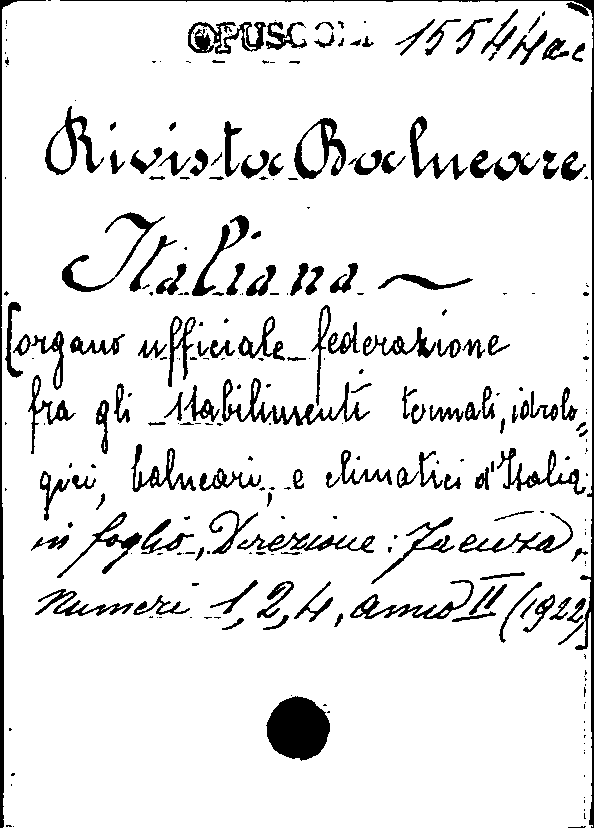 OPUSCOLI 15544 a-c
Rivista Balneare
Italiana ~
[organo ufficiale federazione
fra gli stabilimenti termali, idrolo=
gici, balneari, e climatici d'Italia
in foglio, Direzione:
Numeri 1, 2, 4, anno II (1922)]